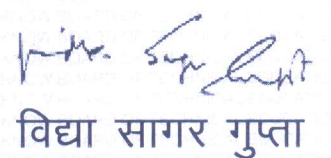 विद्या सागर गुप्ता